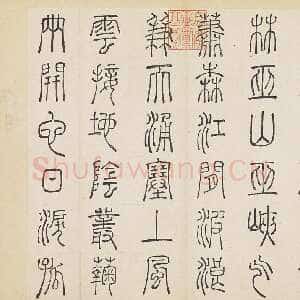 林巫山巫峽气
蕭森江間波浪
兼天涌塞上風
雲接地陰叢菊
兩開他日淚孤
Shufawang.cn